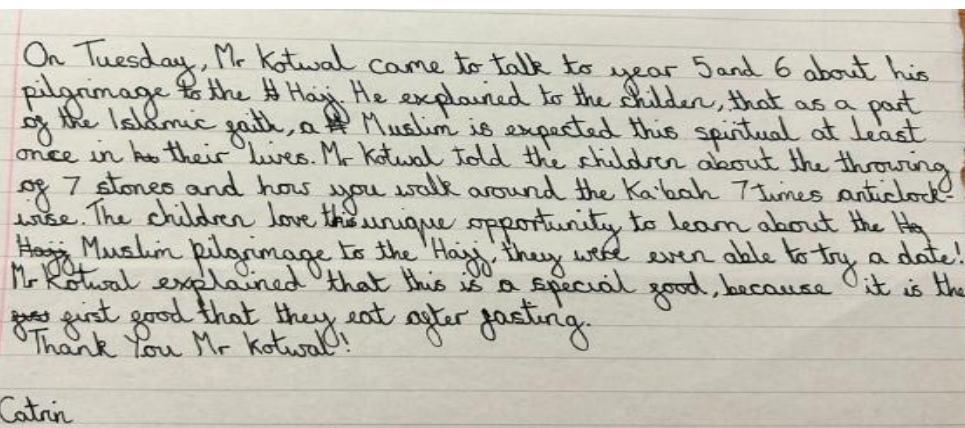 On Tuesday, Mr Kotwal came to talk to year 5 and 6 about his
pilgrimage to the H Hajj. He explained to the childen, that as a part
of the Islamic faith, a Muslim is expected this spiritual at least
once in their lives. Mr Kotwal told the children about the throwing
of 7 stones and how you walk around the Ka'bah 7 times anticlock-
wise. The children love this unique opportunity to learn about the Ha
Hajj Muslim pilgrimage to the Hajj, they were even able to try a date!
Mr Kotwal explained that this is a special food, because it is the
first food that they eat after fasting.
Thank You Mr Kotwal!
Catrin